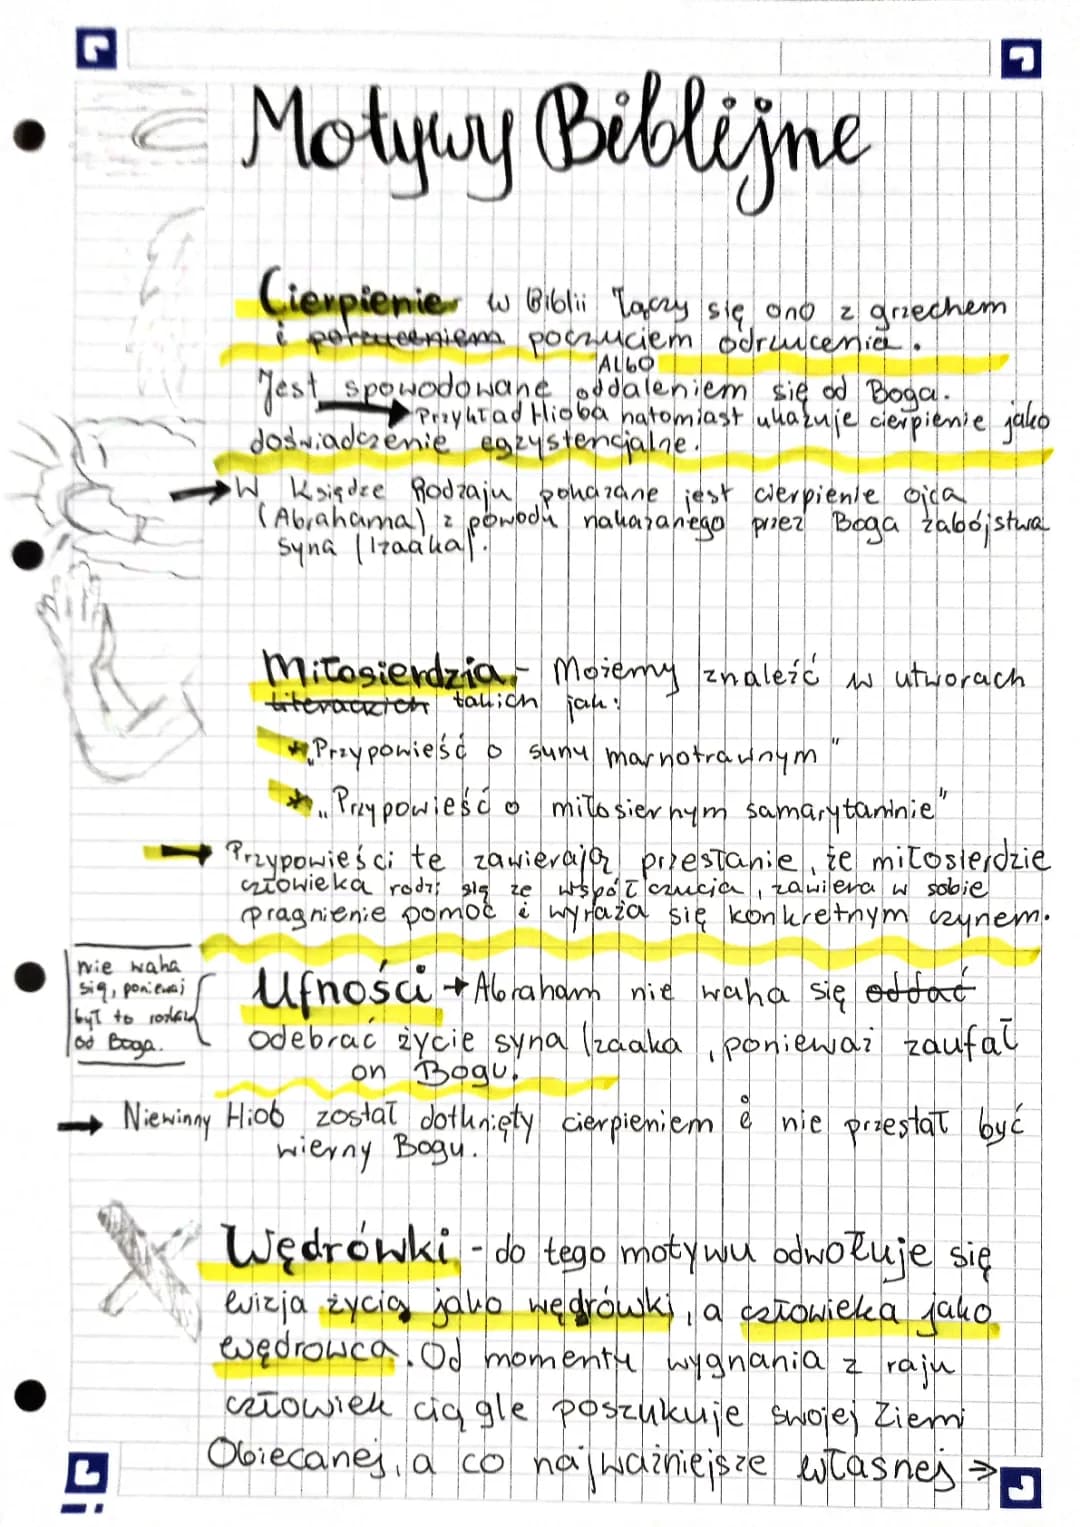 Motywy Biblijne
Cierpienie w Biblii łączy się ono z grzechem
i porzuceniem poczuciem odrzucenia.
ALBO
Jest spowodowane oddaleniem się od Boga.
→ Przykład Hioba natomiast ukazuje cierpienie jako
doświadczenie egzystencjalne.
→ W Księdze Rodzaju pokazane jest cierpienie ojca
(Abrahama) z powodu nakazanego przez Boga zabójstwa
syna (Izaaka).
Miłosierdzia - Możemy znaleźć w utworach
literackich takich jak:
* „Przypowieść o synu marnotrawnym"
* „Przypowieść o miłosiernym samarytaninie"
→ Przypowieści te zawierają przesłanie, że miłosierdzie
człowieka rodzi się ze współczucia, zawiera w sobie
pragnienie pomoc i wyraża się konkretnym czynem.
nie waha
się, ponieważ
był to rozkaz
od Boga.
Ufności → Abraham nie waha się oddać
odebrać życie syna Izaaka, ponieważ zaufał
on Bogu.
→ Niewinny Hiob został dotknięty cierpieniem i nie przestał być
wierny Bogu.
Wędrówki - do tego motywu odwołuje się
wizja życia jako wędrówki, a człowieka jako
wędrowca. Od momentu wygnania z raju
człowiek ciągle poszukuje swojej Ziemi
Obiecanej, a co najważniejsze własnej →